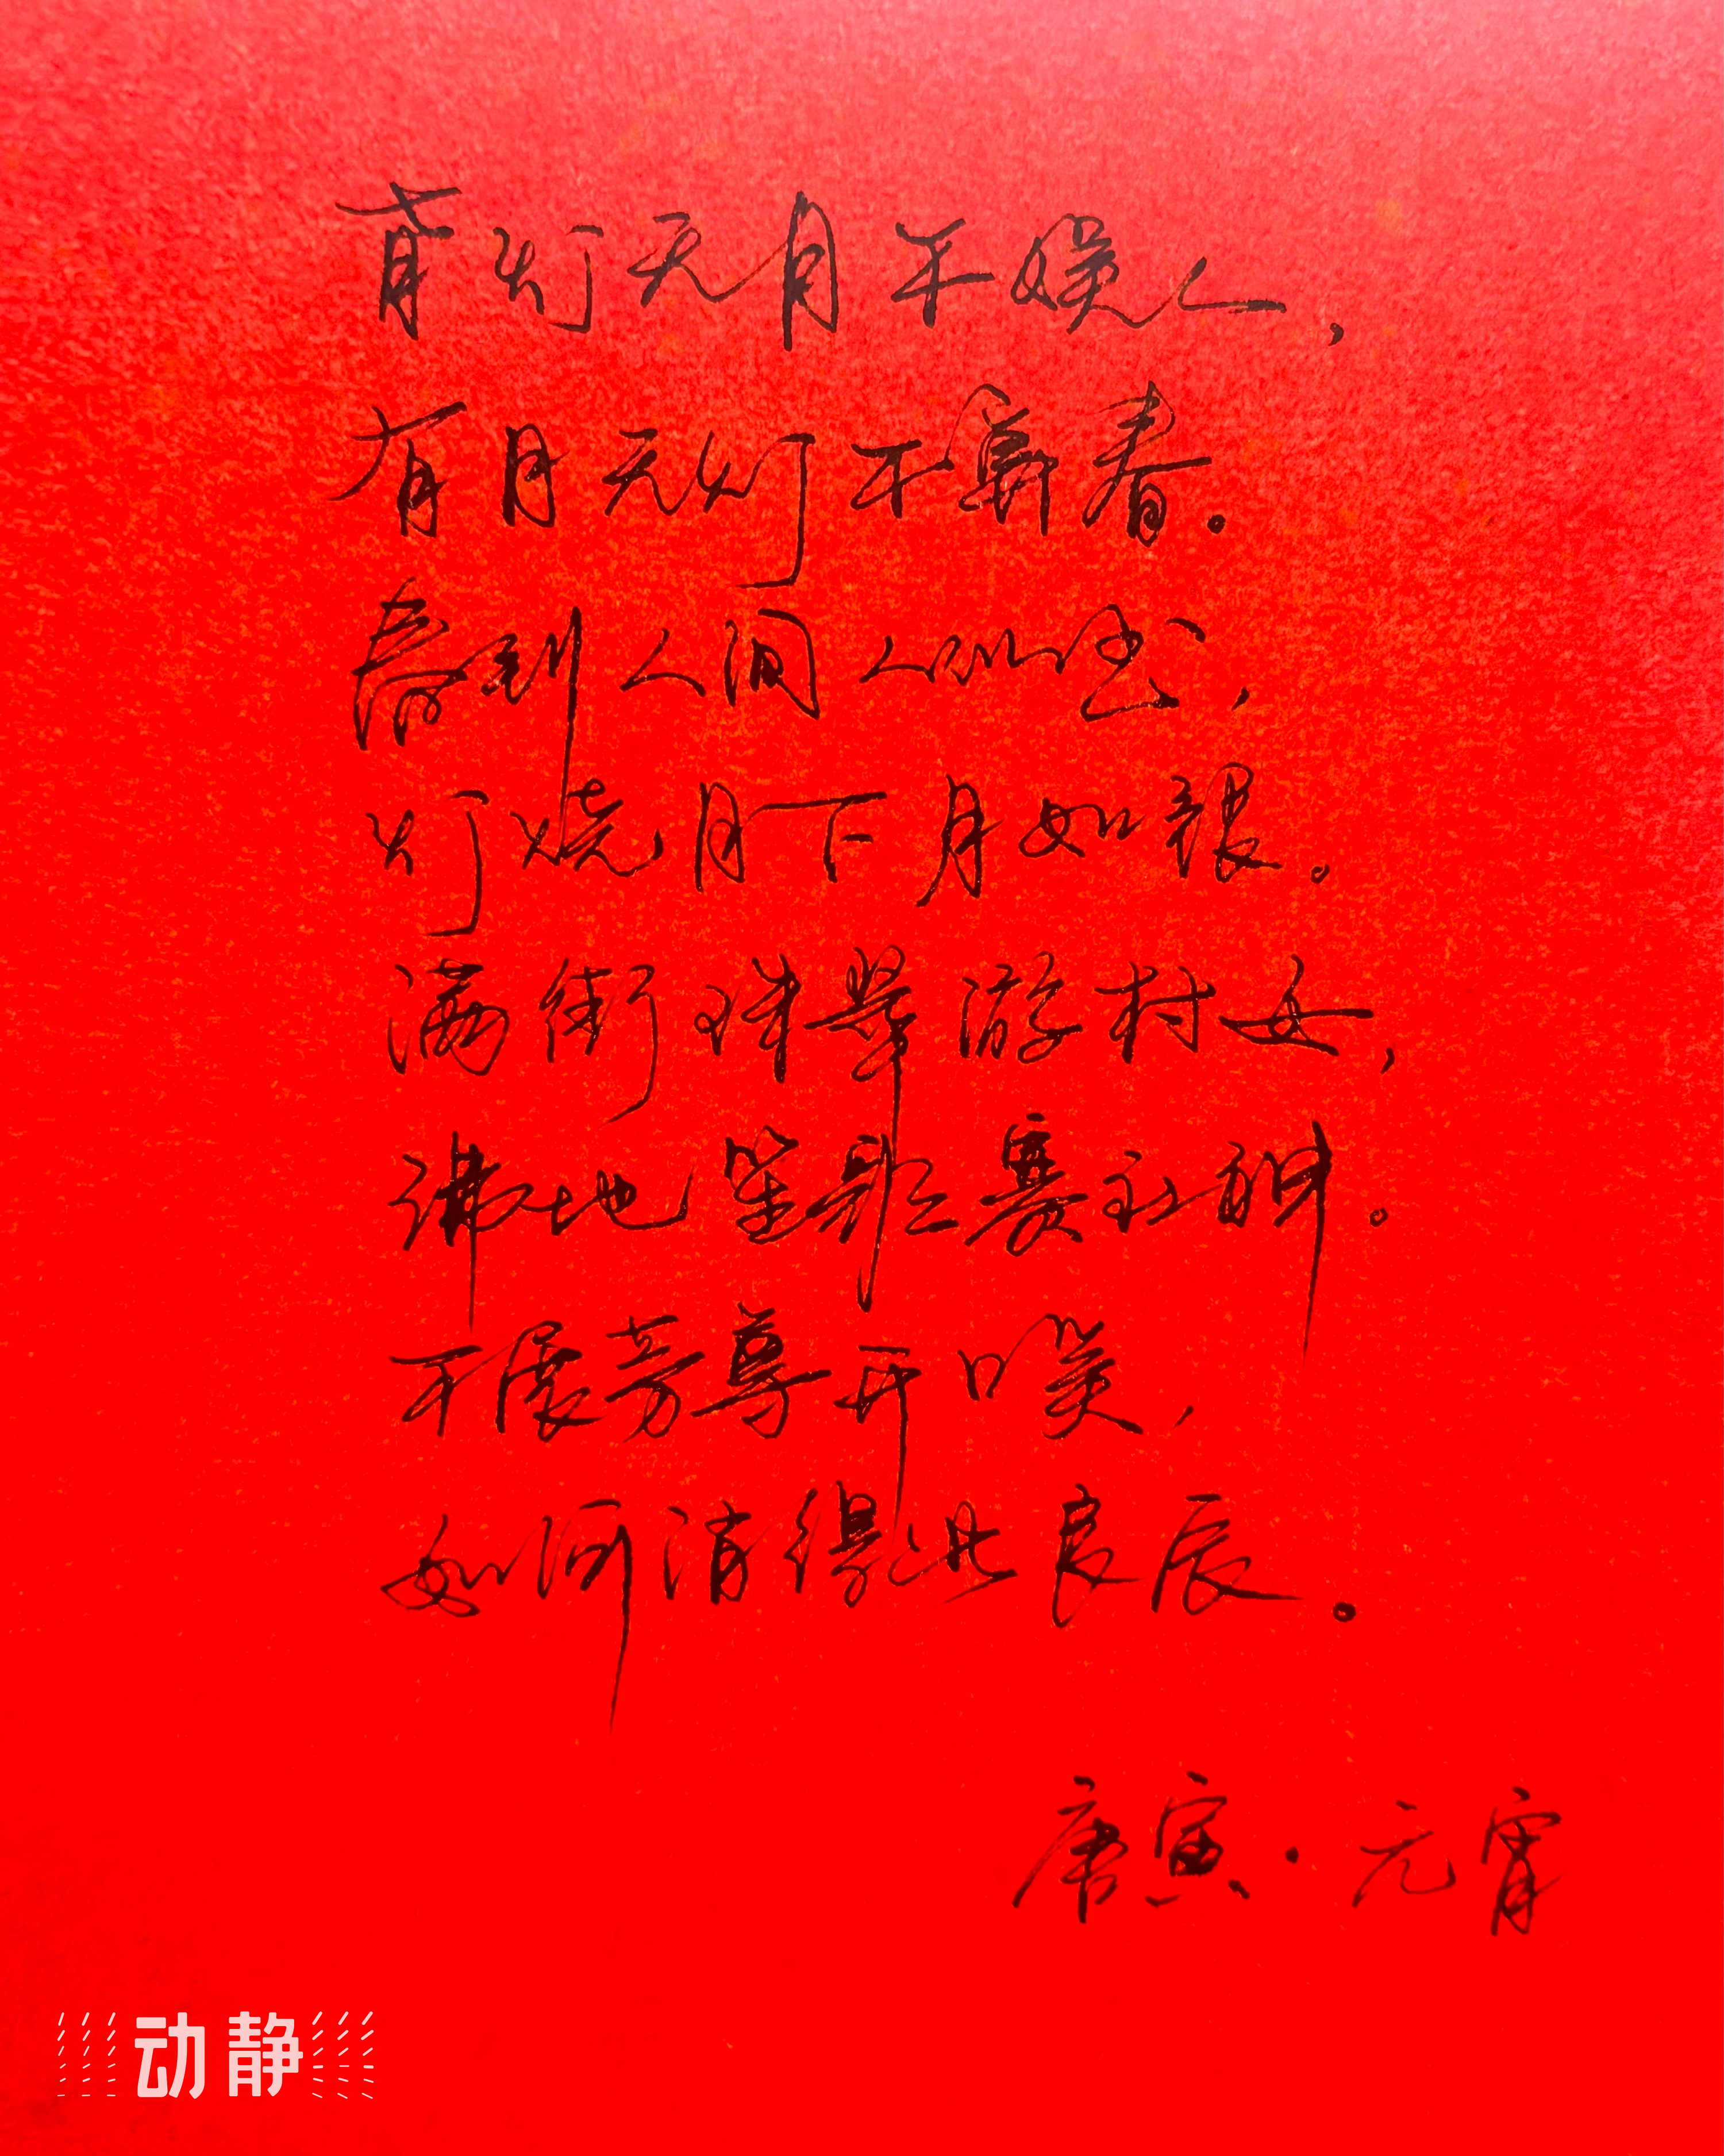 有灯无月不娱人，
有月无灯不算春。
春到人间人似玉，
灯烧月下月如银。
满街珠翠游村女，
沸地笙歌赛社神。
不展芳尊开口笑，
如何消得此良辰。
唐寅·元宵
动静